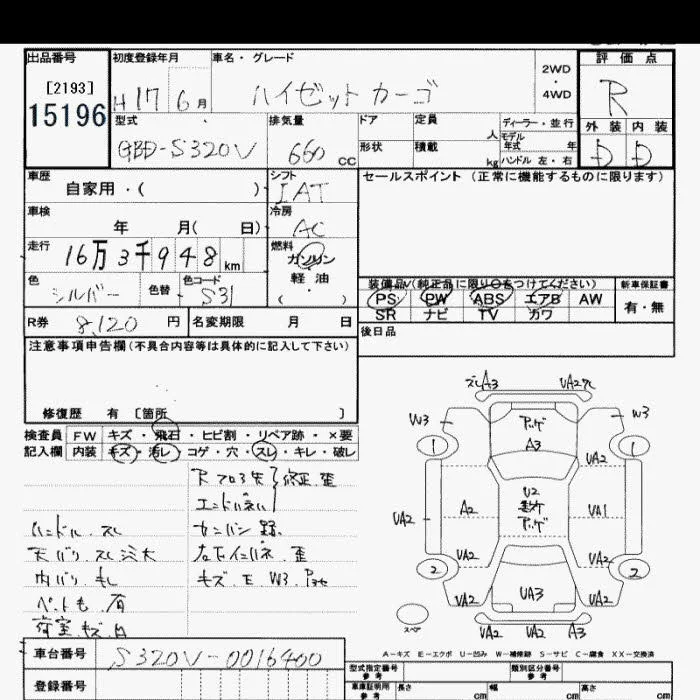 出品番号 初度登録年月 車名・グレード 2WD・4WD 評価点
[2193]
15196 H17年6月 ハイゼットカーゴ R
型式 排気量 ドア 定員 人 ディーラー・並行 外装 内装
GBD-S320V 660CC 形状 積載 kg モデル年式 年 D D
ハンドル 左・右
車歴 自家用・( ) シフト IAT セールスポイント (正常に機能するものに限ります)
車検 年 月( 日) 冷房 AC
走行 16万3千948km 燃料 ガソリン・軽油・( )
色 シルバー 色替 色コード S31
装備品(純正品に限り○をつけてください) 新車保証書
PS PW ABS エアB AW 有・無
SR ナビ TV カワ
R券 8,120円 名変期限 月 日 後日品
注意事項申告欄(不具合内容等は具体的に記入して下さい)
修復歴 有 [箇所 ]
検査員記入欄 FW キズ・飛石・ヒビ割・リペア跡・×要
内装 キズ・汚レ・コゲ・穴・スレ・キレ・破レ
修正、歪
エンドパネル
ハンドル、スレ
天バリ、スレ
内バリ
ペットも、有
歪
キズ、E W3
A3 VA2
W3 W3
1 1
A3 UA2
A2 U2 UA1
VA2
VA2 VA2
2 2
UA3
VA2 VA2
スペア
VA2 VA2 A3
A−キズ E−エクボ U−凹み W−補修跡 S−サビ C−腐食 XX−交換済
車台番号 S320V-0016400
型式指定番号 参考 類別区分番号 参考
登録番号 車庫証明用 参考 長さ cm 幅 cm 高さ cm